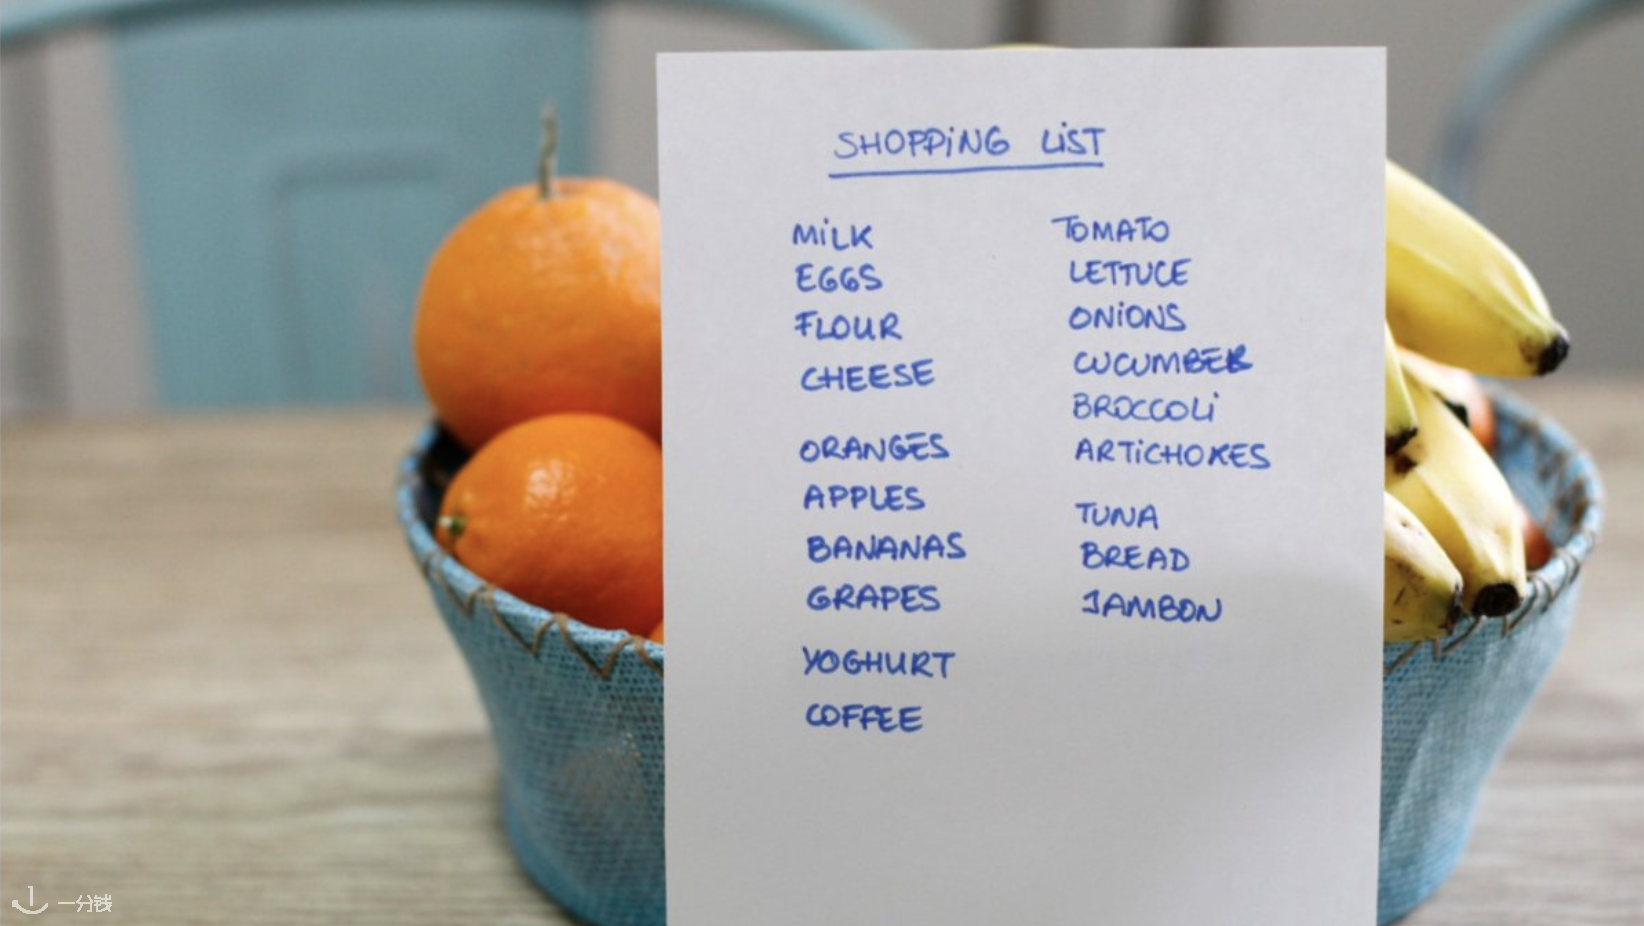 SHOPPING LIST
MILK
EGGS
FLOUR
CHEESE
ORANGES
APPLES
BANANAS
GRAPES
YOGHURT
COFFEE
TOMATO
LETTUCE
ONIONS
CUCUMBER
BROCCOLI
ARTICHOKES
TUNA
BREAD
JAMBON
一分钱